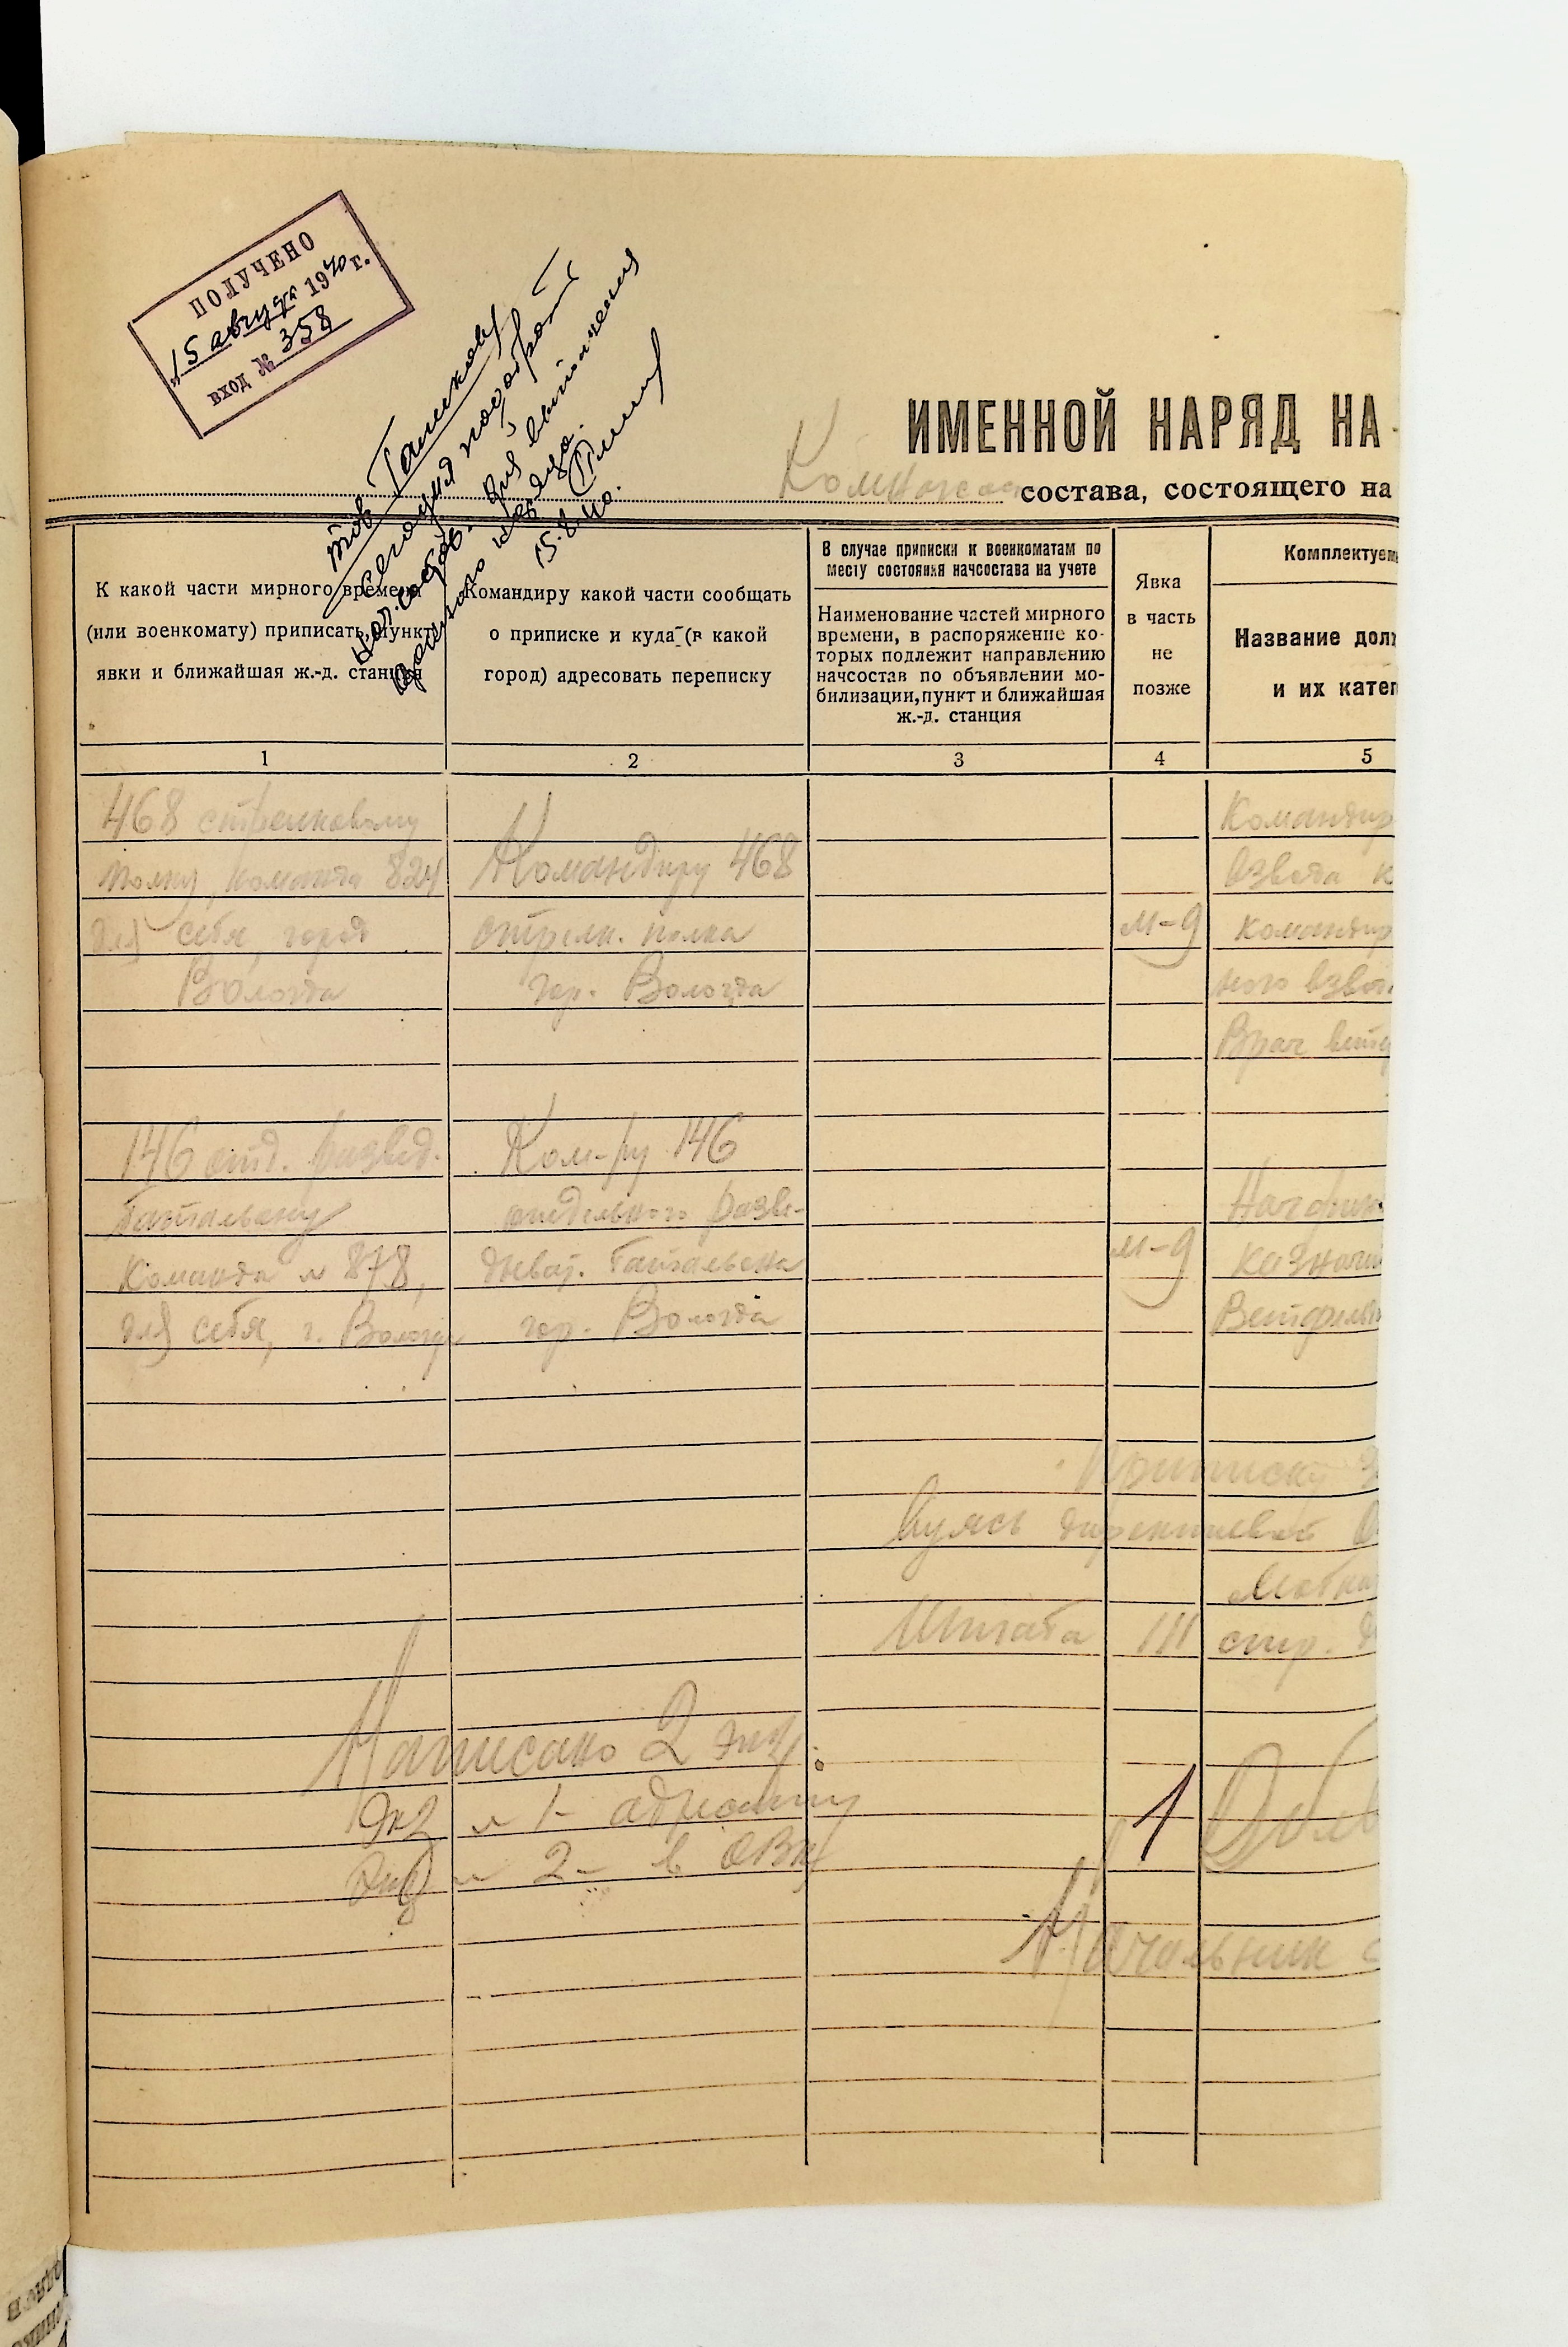 ПОЛУЧЕНО
„15 августа 1940 г.
вход № 358
тов Ташкову
Сегодня подобрать
нач. состав. для выполнения
наряда.
15.8.40.
ИМЕННОЙ НАРЯД НА
состава, состоящего на
К какой части мирного времени
(или военкомату) приписать, пункт
явки и ближайшая ж.-д. станция
Командиру какой части сообщать
о приписке и куда (в какой
город) адресовать переписку
В случае приписки к военкоматам по
месту состояния начсостава на учете
Наименование частей мирного
времени, в распоряжение ко-
торых подлежит направлению
начсостав по объявлении мо-
билизации, пункт и ближайшая
ж.-д. станция
Явка
в часть
не
позже
Комплектуем
Название долж
и их катег
1
2
3
4
5
468 стрелковому
полку, команда 824
для себя, город
Вологда
Командиру 468
стрелк. полка
гор. Вологда
м-9
Командир
взвода к
командир
ного взво
Врач вете
146 отд. развед.
батальону
Команда № 878,
для себя, г. Вологда
Ком-ру 146
отдельного разве-
дыват. батальона
гор. Вологда
м-9
Начфин
казначе
Ветфельд
Приписку
вуясь директивой
Мобил
Штата 111 стр.
Написано 2 экз.
Экз № 1- адресату
Экз № 2- в ОВК
1
Начальник